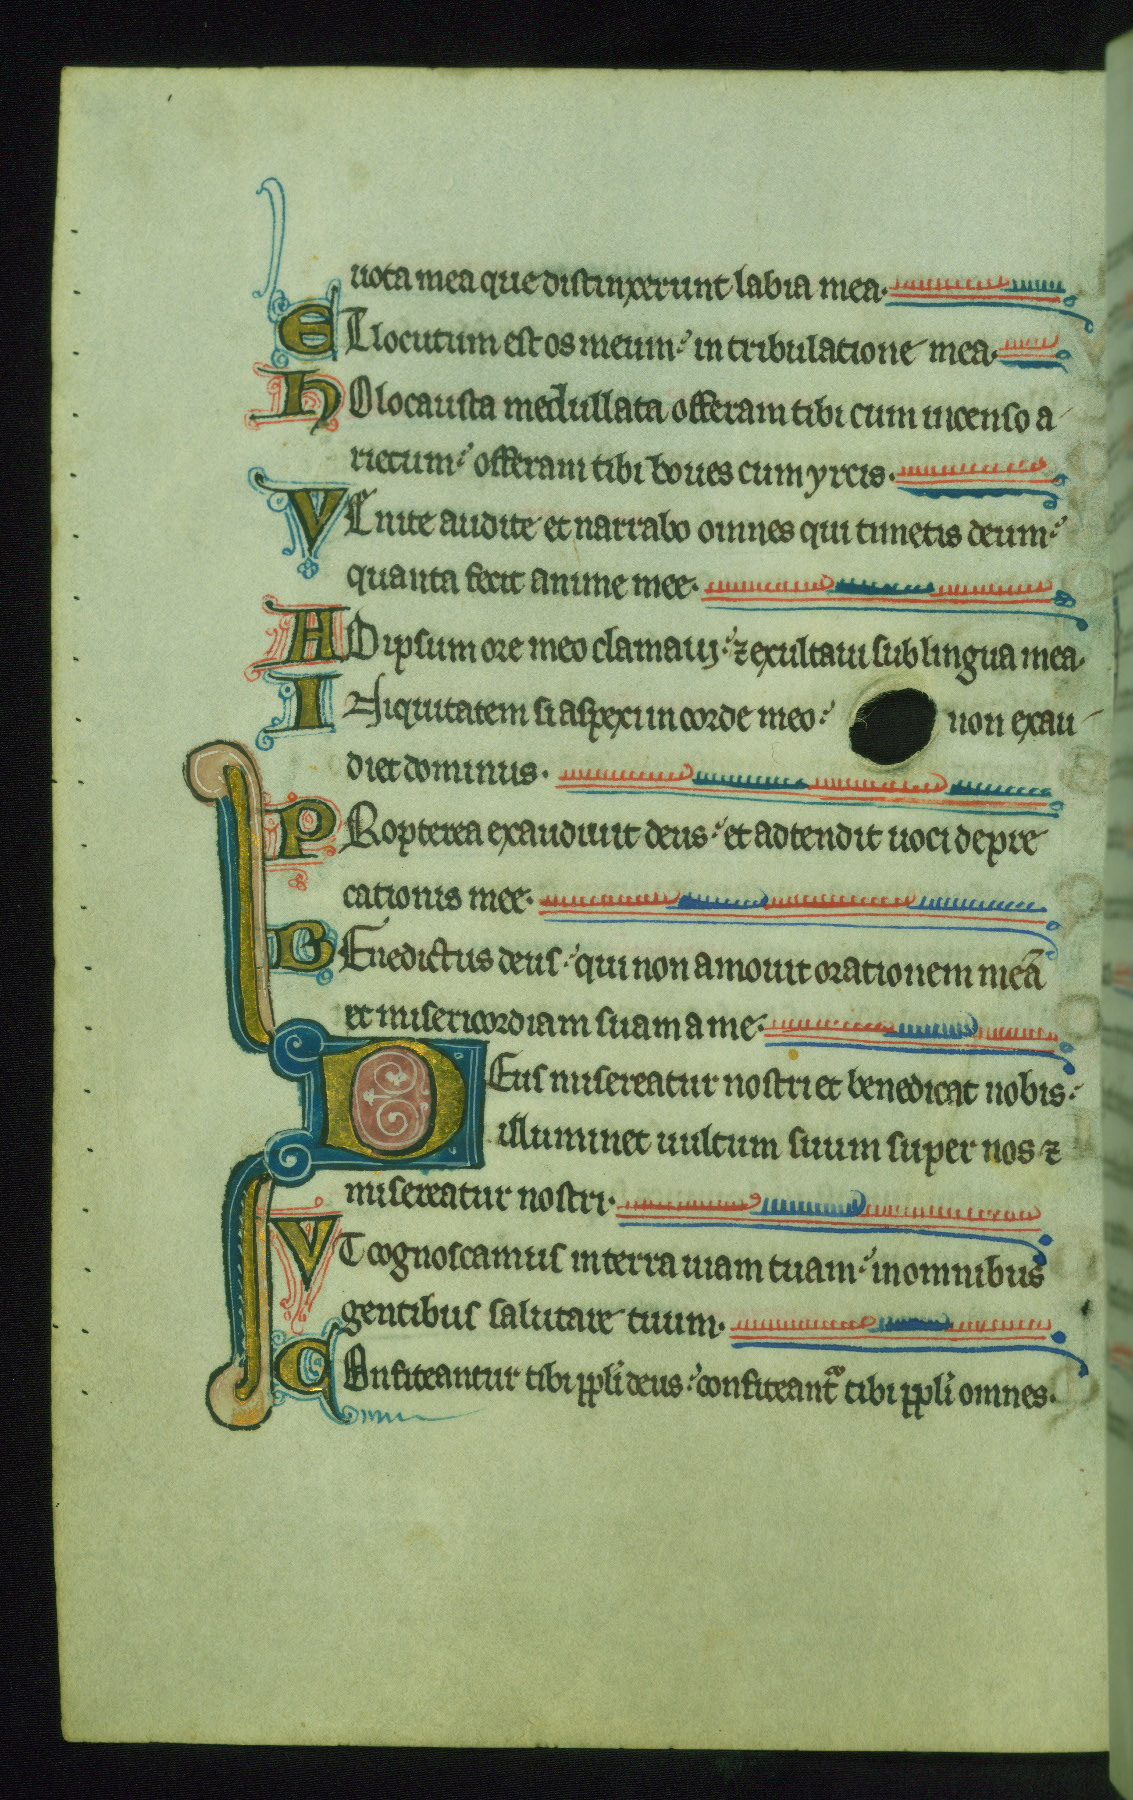 uota mea que distinxerunt labia mea.
ET locutum est os meum: in tribulatione mea.
HOlocausta medullata offeram tibi cum incenso a
rietum: offeram tibi boues cum yrcis.
VEnite audite et narrabo omnes qui timetis deum:
quanta fecit anime mee.
AD ipsum ore meo clamauj: ⁊ exultaui sub lingua mea.
INiquitatem si aspexi in corde meo: non exau
diet dominus.
PRopterea exaudiuit deus: et adtendit uoci depre
cationis mee.
BEnedictus deus: qui non amouit orationem meā
et misericordiam suam a me.
DEus misereatur nostri et benedicat nobis:
illuminet uultum suum super nos ⁊
misereatur nostri.
VT cognoscamus in terra uiam tuam: in omnibus
gentibus salutare tuum.
COnfiteantur tibi ppli deus: confiteantᷣ tibi ppli omnes.